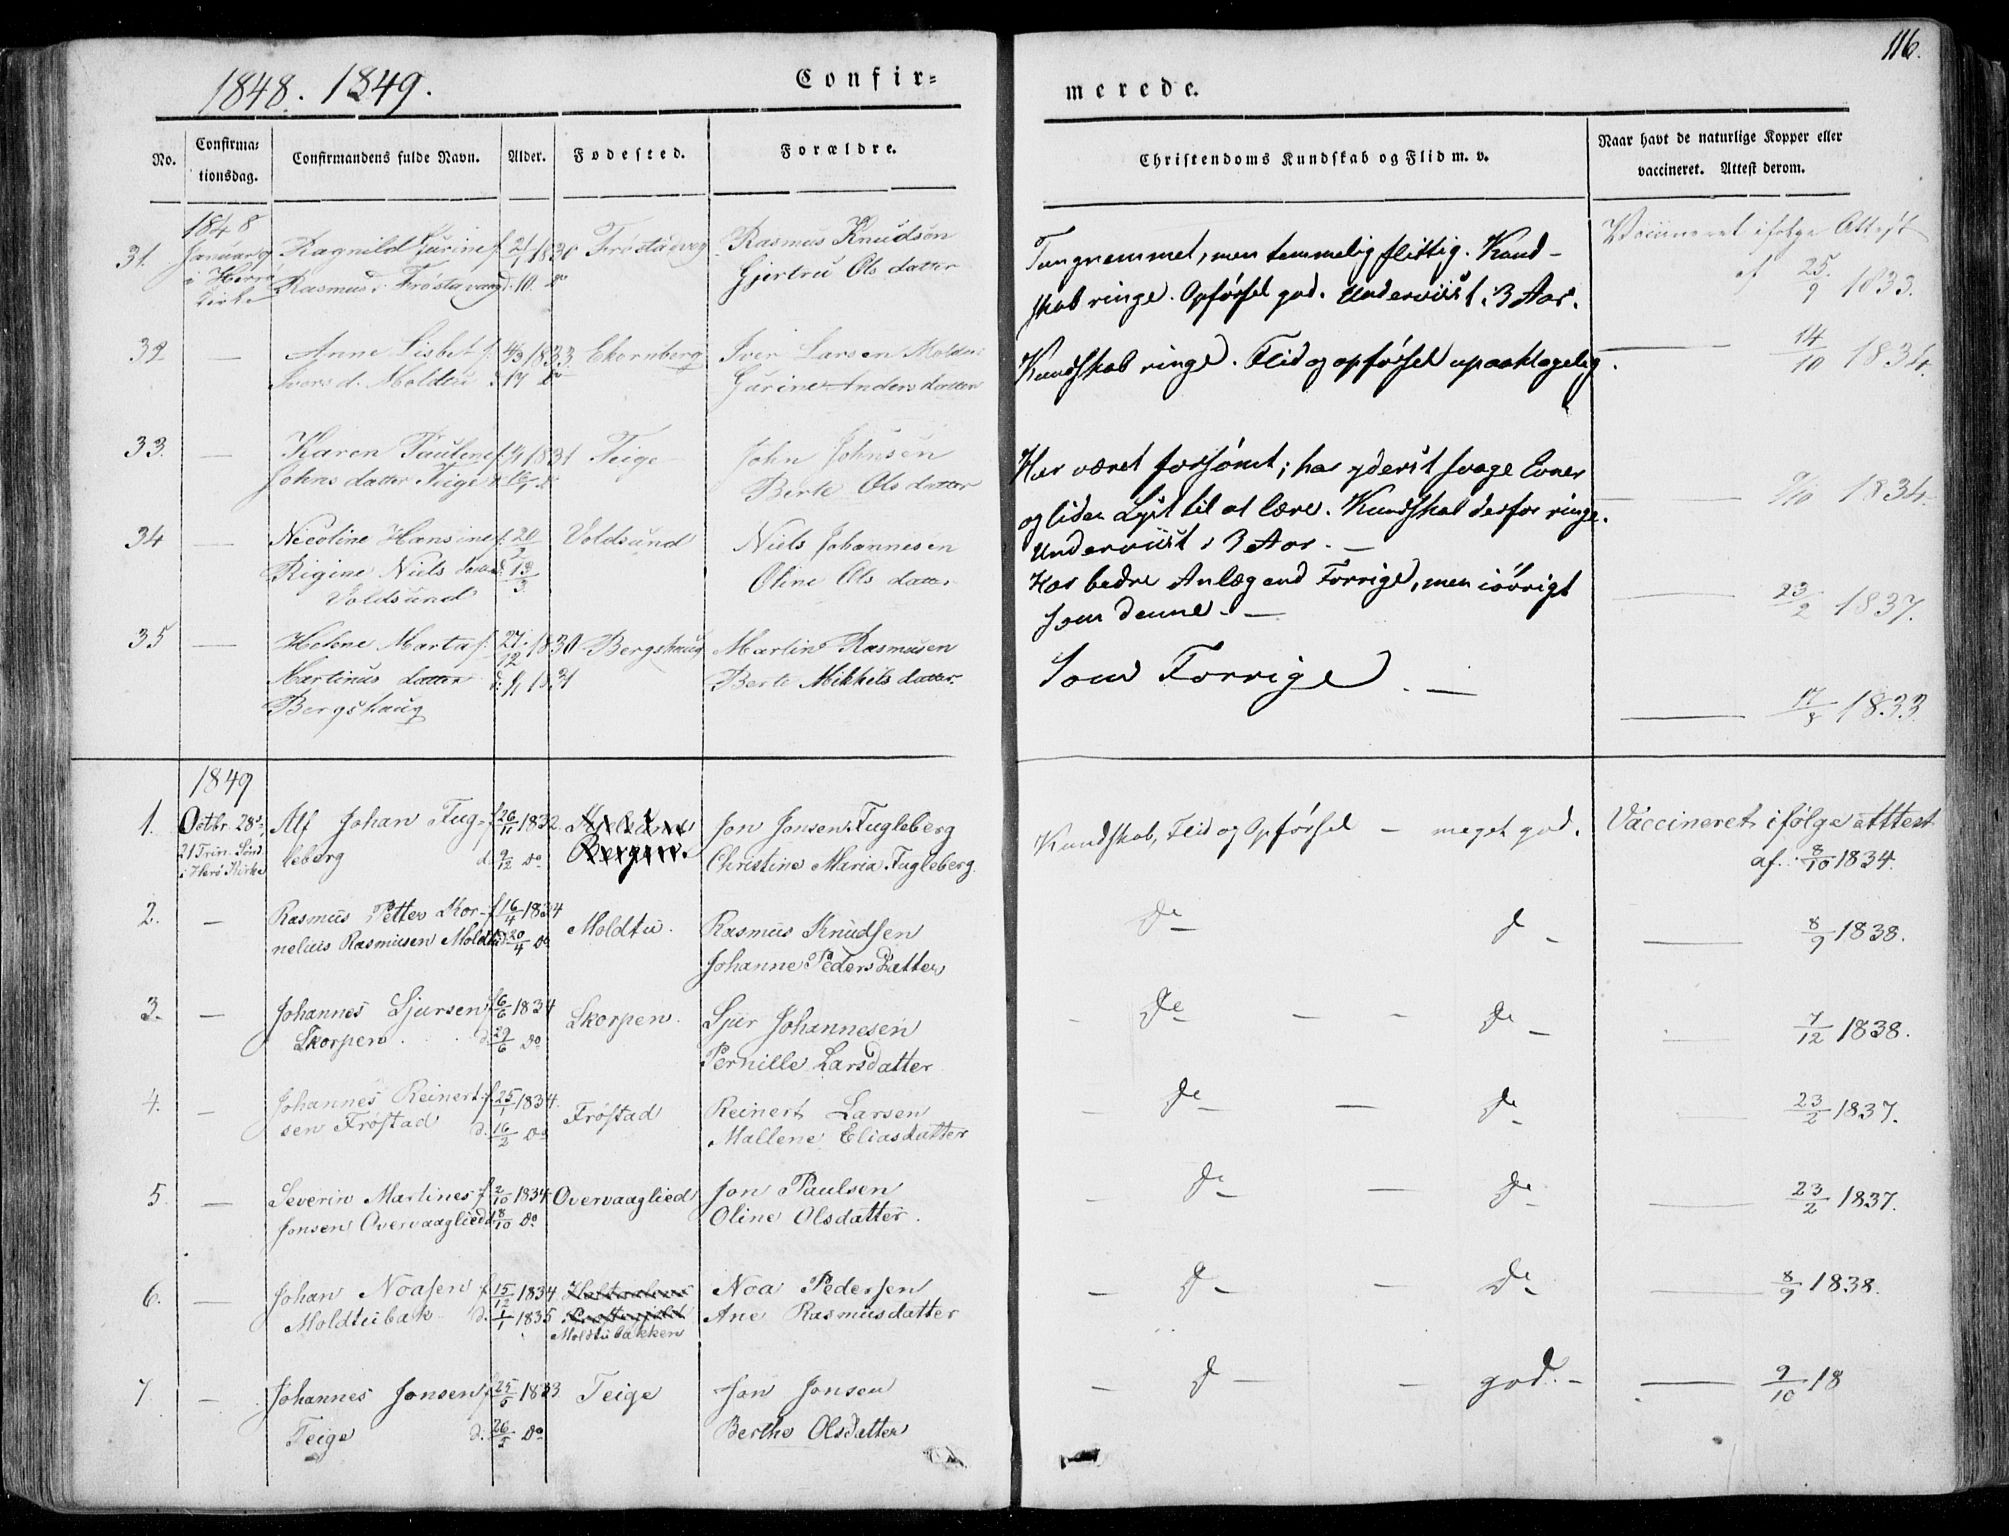 116.
1848. 1849.
Confir=
merede.
No.
Confirma=
tionsdag.
Confirmandens fulde Navn.
Alder.
Fødested.
Forældre.
Christendoms Kundskab og Flid m. v.
Naar havt de naturlige Kopper eller
vaccineret. Attest derom.
1848
31. Ragnild Gurine f. 21/1 1830 Rasmus Knudsen
Rasmusd. d. 10. Do Gjertru Olsdatter
Tungnemmet, men temmelig flittig. Kund-
skab ringe. Opførsel god. Underviist i 3 Aar.
Vaccineret ifølge Attest
af 25/9 1833.
32 — Anne Lisbet f. 4/3 1833 Ekornberg Iver Larsen Moldtu
Ivers d. Moldtu d. 17 Do Gurine Andersdatter
Kundskab ringe. Flid og opførsel upaaklagelig.
— 14/10 1834.
33. — Karen Pauline f. 1831 Teige John Johnsen
Johns datter Teige Berte Olsdatter
Har været forsømt; har yderst svage Evner
og liden Lyst til at lære. Kundskab derfor ringe.
Underviist i 3 Aar. —
— 1834.
34 — Nicoline Hansine f. 20 Voldsund Niels Johannesen
Rigine Niels datter d. 13/3 Oline Ols datter
Voldsund
Har bedre Anlæg end Forrige, men iøvrigt
som denne. —
— 23/2 1837.
35 — Helene Marta f. 27/12 1830 Bergshaug Martin Rasmusen
Martinus datter d. 1/1 1831 Berte Mikkels datter.
Bergshaug
Som Forrige. —
— 17/8 1833
1849
1. Octbr. 28de Alf Johan Fug- f. 26/11 1832 Jon Jonsen Fugleberg
21 Trin. Sønd. leberg d. 9/12 Do Bergen. Christine Maria Fugleberg.
i Herø Kirke
Kundskab, Flid og Opførsel — meget god.
Vaccineret ifølge atttest
af. 8/10 1834.
2. — Rasmus Petter Kor- f. 16/4 1834 Moldtu. Rasmus Knudsen
nelius Rasmusen Moldtu d. 20/4 Do Johanne Peders Datter
Do — D —
— 8/9 1838.
3. — Johannes Sjursen f. 6/6 1834 Skorpen. Sjur Johannesen
Skorpen. d. 29/6 Do Pernille Larsdatter
— Do — — Do —
— 7/12 1838.
4. — Johannes Reinert- f. 25/1 1834. Frøstad Reinert Larsen
sen Frøstad d. 16/2 Do Mallene Eliasdatter
— Do — — Do —
— 23/2 1837.
5. — Severin Martines f. 2/10 1834 Overvaaglied Jon Paulsen
Jonsen Overvaaglied d. 8/10 Do Oline Olsdatter.
— Do — — Do —
— 23/2 1837.
6. — Johan Noasen f. 15/12 1834 Noa Pedersen
Moldtubak d. 1/1 1835 Ane Rasmusdatter
Moldtubakken
— D — — Do —
— 8/9 1838.
7. — Johannes Jonsen f. 25/5 1833 Teige Jon Jonsen
Teige d. 26/5 Do Berthe Olsdatter
— D — — god. —
— 9/10 18